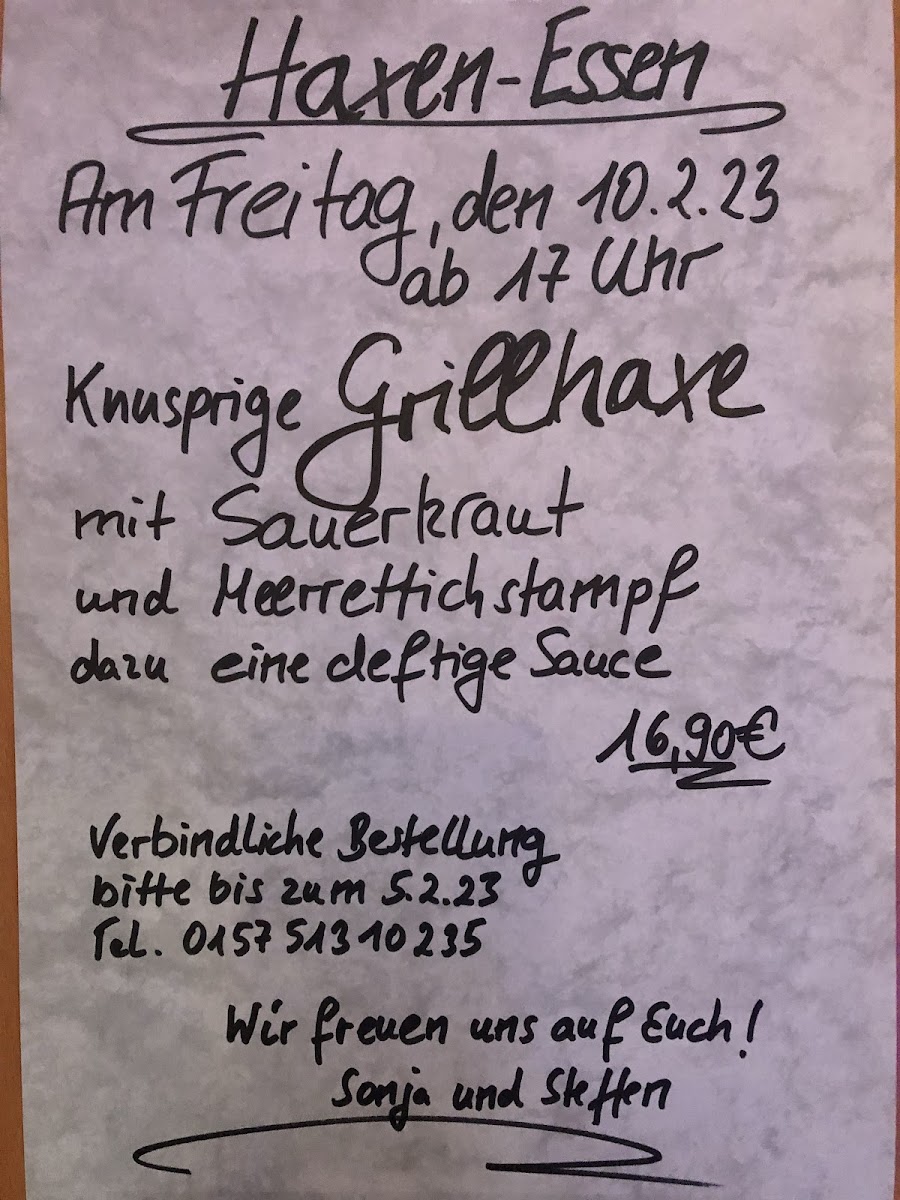 Haxen-Essen
Am Freitag, den 10.2.23
ab 17 Uhr
Knusprige Grillhaxe
mit Sauerkraut
und Meerrettichstampf
dazu eine deftige Sauce
16,90€
Verbindliche Bestellung
bitte bis zum 5.2.23
Tel. 0157 513 10 235
Wir freuen uns auf Euch!
Sonja und Steffen